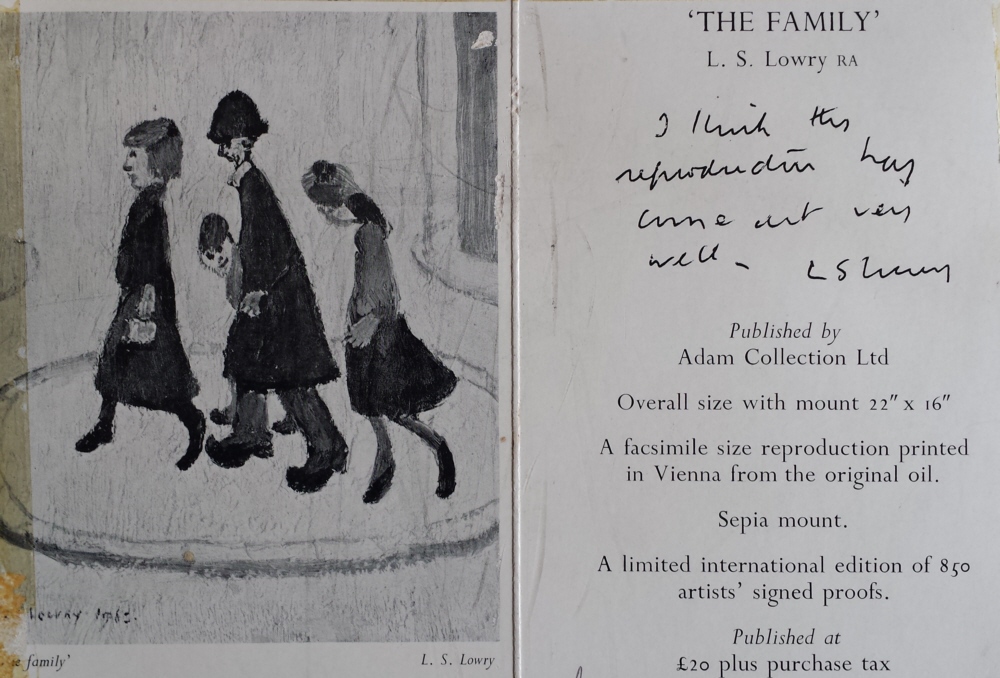 Lowry 196
e family'
L. S. Lowry
'THE FAMILY'
L. S. Lowry RA
I think this
reproduction has
come out very
well – L S Lowry
Published by
Adam Collection Ltd
Overall size with mount 22" x 16"
A facsimile size reproduction printed
in Vienna from the original oil.
Sepia mount.
A limited international edition of 850
artists' signed proofs.
Published at
£20 plus purchase tax